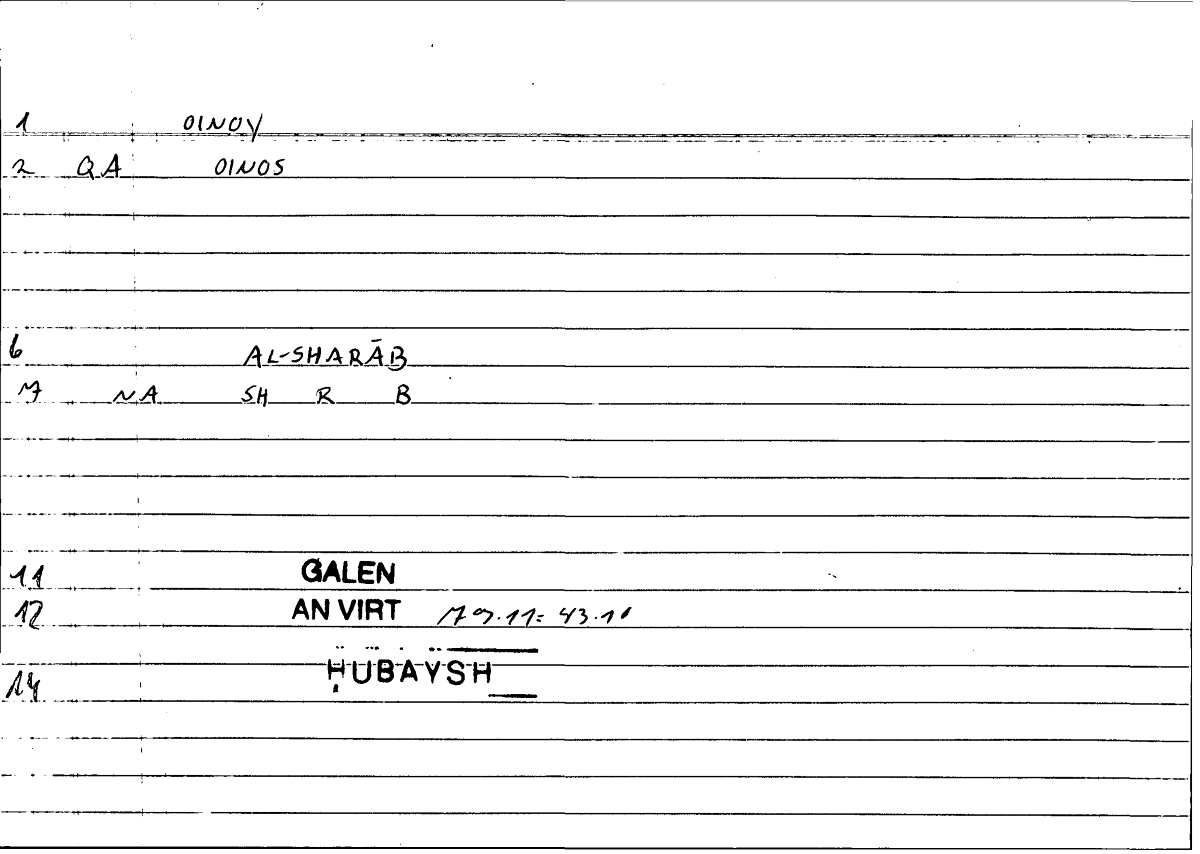 1 OINOY
2 QA OINOS
6 AL-SHARĀB
7 NA SH R B
11 GALEN
12 AN VIRT 79.11: 43.10
14 ḤUBAYSH